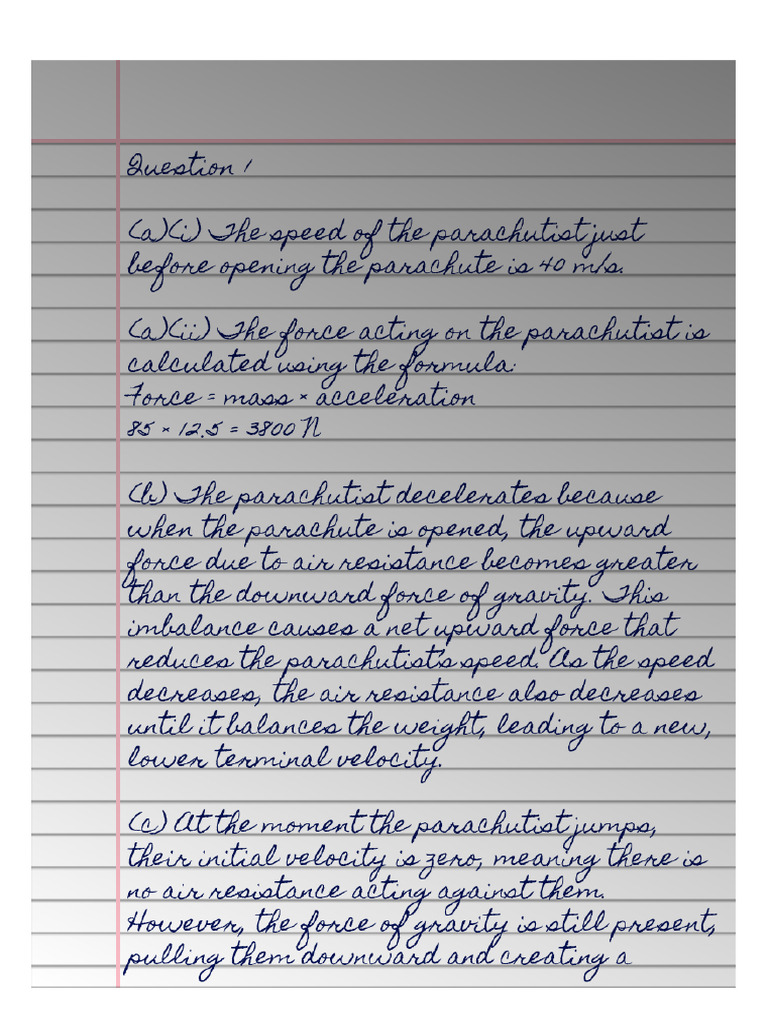 Question 1
(a)(i) The speed of the parachutist just
before opening the parachute is 40 m/s.
(a)(ii) The force acting on the parachutist is
calculated using the formula:
Force = mass × acceleration
85 × 12.5 = 3800 N
(b) The parachutist decelerates because
when the parachute is opened, the upward
force due to air resistance becomes greater
than the downward force of gravity. This
imbalance causes a net upward force that
reduces the parachutist's speed. As the speed
decreases, the air resistance also decreases
until it balances the weight, leading to a new,
lower terminal velocity.
(c) At the moment the parachutist jumps,
their initial velocity is zero, meaning there is
no air resistance acting against them.
However, the force of gravity is still present,
pulling them downward and creating a